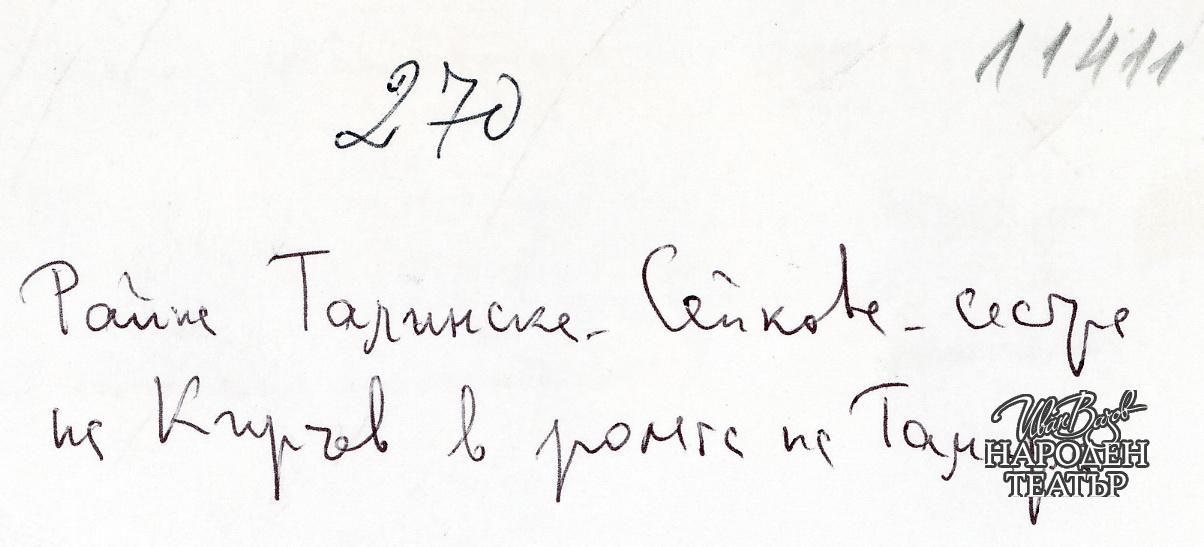 11411
270
Райна Талинска - Сейкова - сестра
на Кирчев в ролята на
Иван Вазов
НАРОДЕН
ТЕАТЪР